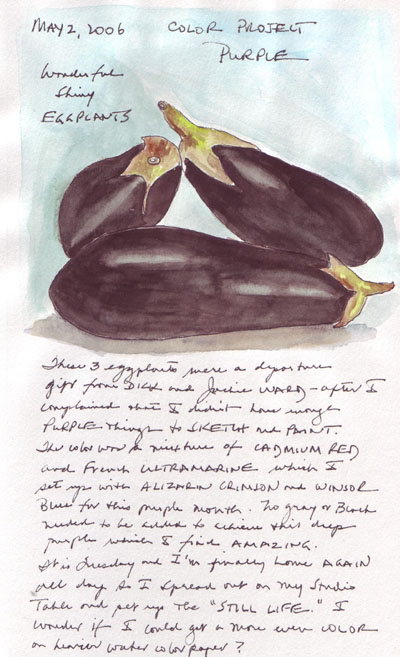 MAY 2, 2006
COLOR PROJECT
PURPLE
Wonderful
Shiny
EGGPLANTS
These 3 eggplants were a departure
gift from DICK and Jackie WARD - after I
complained that I didn't have enough
PURPLE things to SKETCH and PAINT.
The color was a mixture of CADMIUM RED
and French ULTRAMARINE which I
set up with ALIZARIN CRIMSON and WINSOR
Blue for this purple month. No gray or Black
needed to be added to achieve this deep
purple which I find AMAZING.
It is Tuesday and I'm finally home AGAIN
all day so I spread out on my Studio
Table and set up the "STILL LIFE." I
wonder if I could get a more even COLOR
on heavier water color paper?